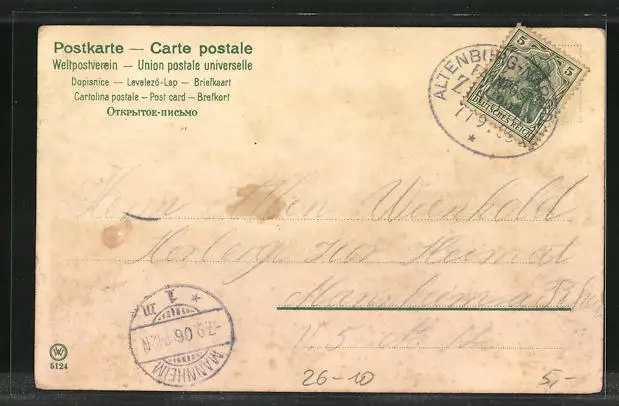 Postkarte — Carte postale
Weltpostverein — Union postale universelle
Dopisnice — Levelező-Lap — Briefkaart
Cartolina postale — Post card — Brefkort
Открытое-письмо
5 5
DEUTSCHES REICH
ALTENBURG
Herrn Wienhold
Herberge zur Heimat
Mannheim
1
7.9.06
MANNHEIM
W
5124
26-10
5,-